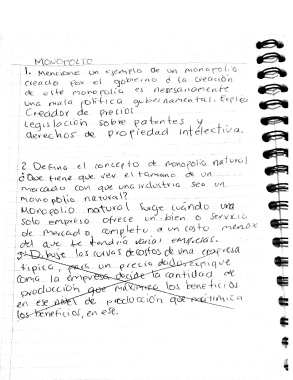 MONOPOLIO
1. Mencione un ejemplo de un monopolio
creado por el gobierno d la creación
de este monopolio es necesariamente
una mala política gubernamental. Explica
Creador de precios
Legislación sobre patentes y
derechos de propiedad intelectiva.
2. Defina el concepto de monopolio natural
¿Que tiene que ver el tamano de un
mercado con que una industria sea un
monopolio natural?
Monopolio natural surge cuándo una
solo empresa ofrece un bien o servicio
de mercado completo a un costo menor
del que tendria varias empresas.
Dibuje las curvas de costos de una empresa
tipica, para un precio dado explique
como la empresa decide la cantidad de
producción que maximica los beneficios
en ese nivel de producción que maximica
los beneficios, en ese.